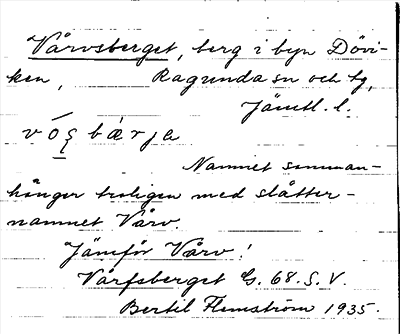 Vårvsberget, berg i byn Dövi-
ken, Ragunda sn och tg,
Jämtl. l.
Namnet samman-
hänger troligen med slåtter-
namnet Vårv.
Jämför Vårv!
Vårfsberget G. 68. S. V.
Bertil Flemström 1935.